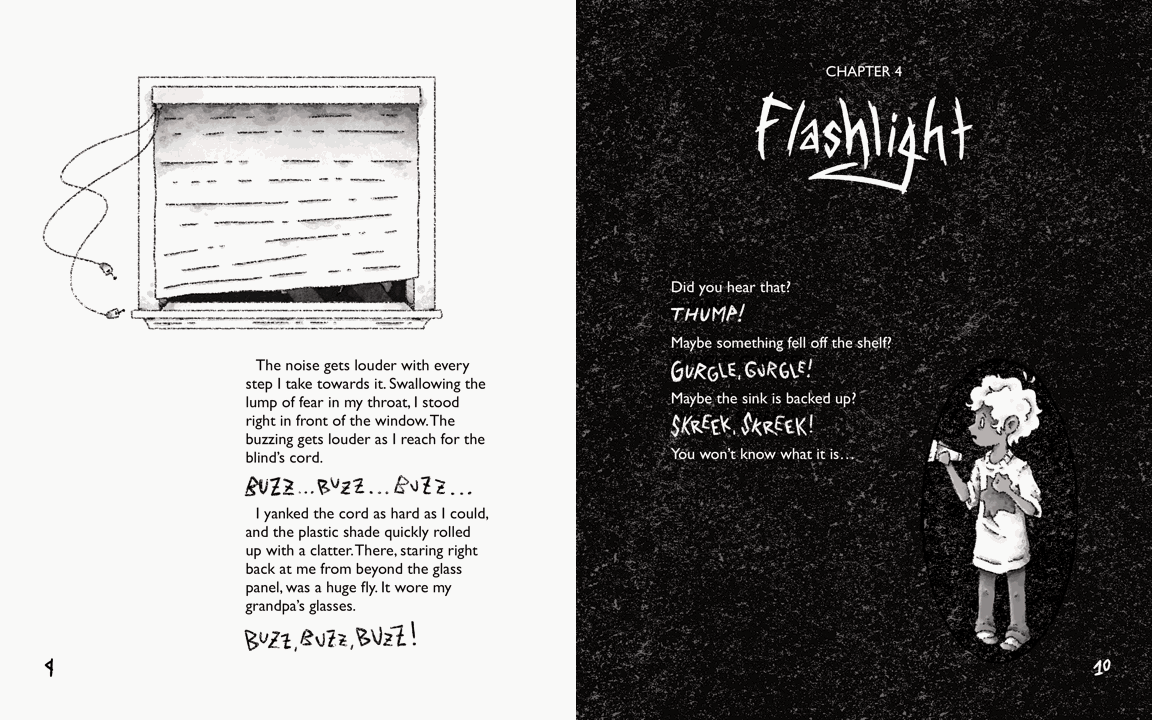 The noise gets louder with every
step I take towards it. Swallowing the
lump of fear in my throat, I stood
right in front of the window. The
buzzing gets louder as I reach for the
blind's cord.
BUZZ...BUZZ...BUZZ...
I yanked the cord as hard as I could,
and the plastic shade quickly rolled
up with a clatter. There, staring right
back at me from beyond the glass
panel, was a huge fly. It wore my
grandpa's glasses.
BUZZ, BUZZ, BUZZ!
9
CHAPTER 4
Flashlight
Did you hear that?
THUMP!
Maybe something fell off the shelf?
GURGLE, GURGLE!
Maybe the sink is backed up?
SKREEK, SKREEK!
You won't know what it is...
10